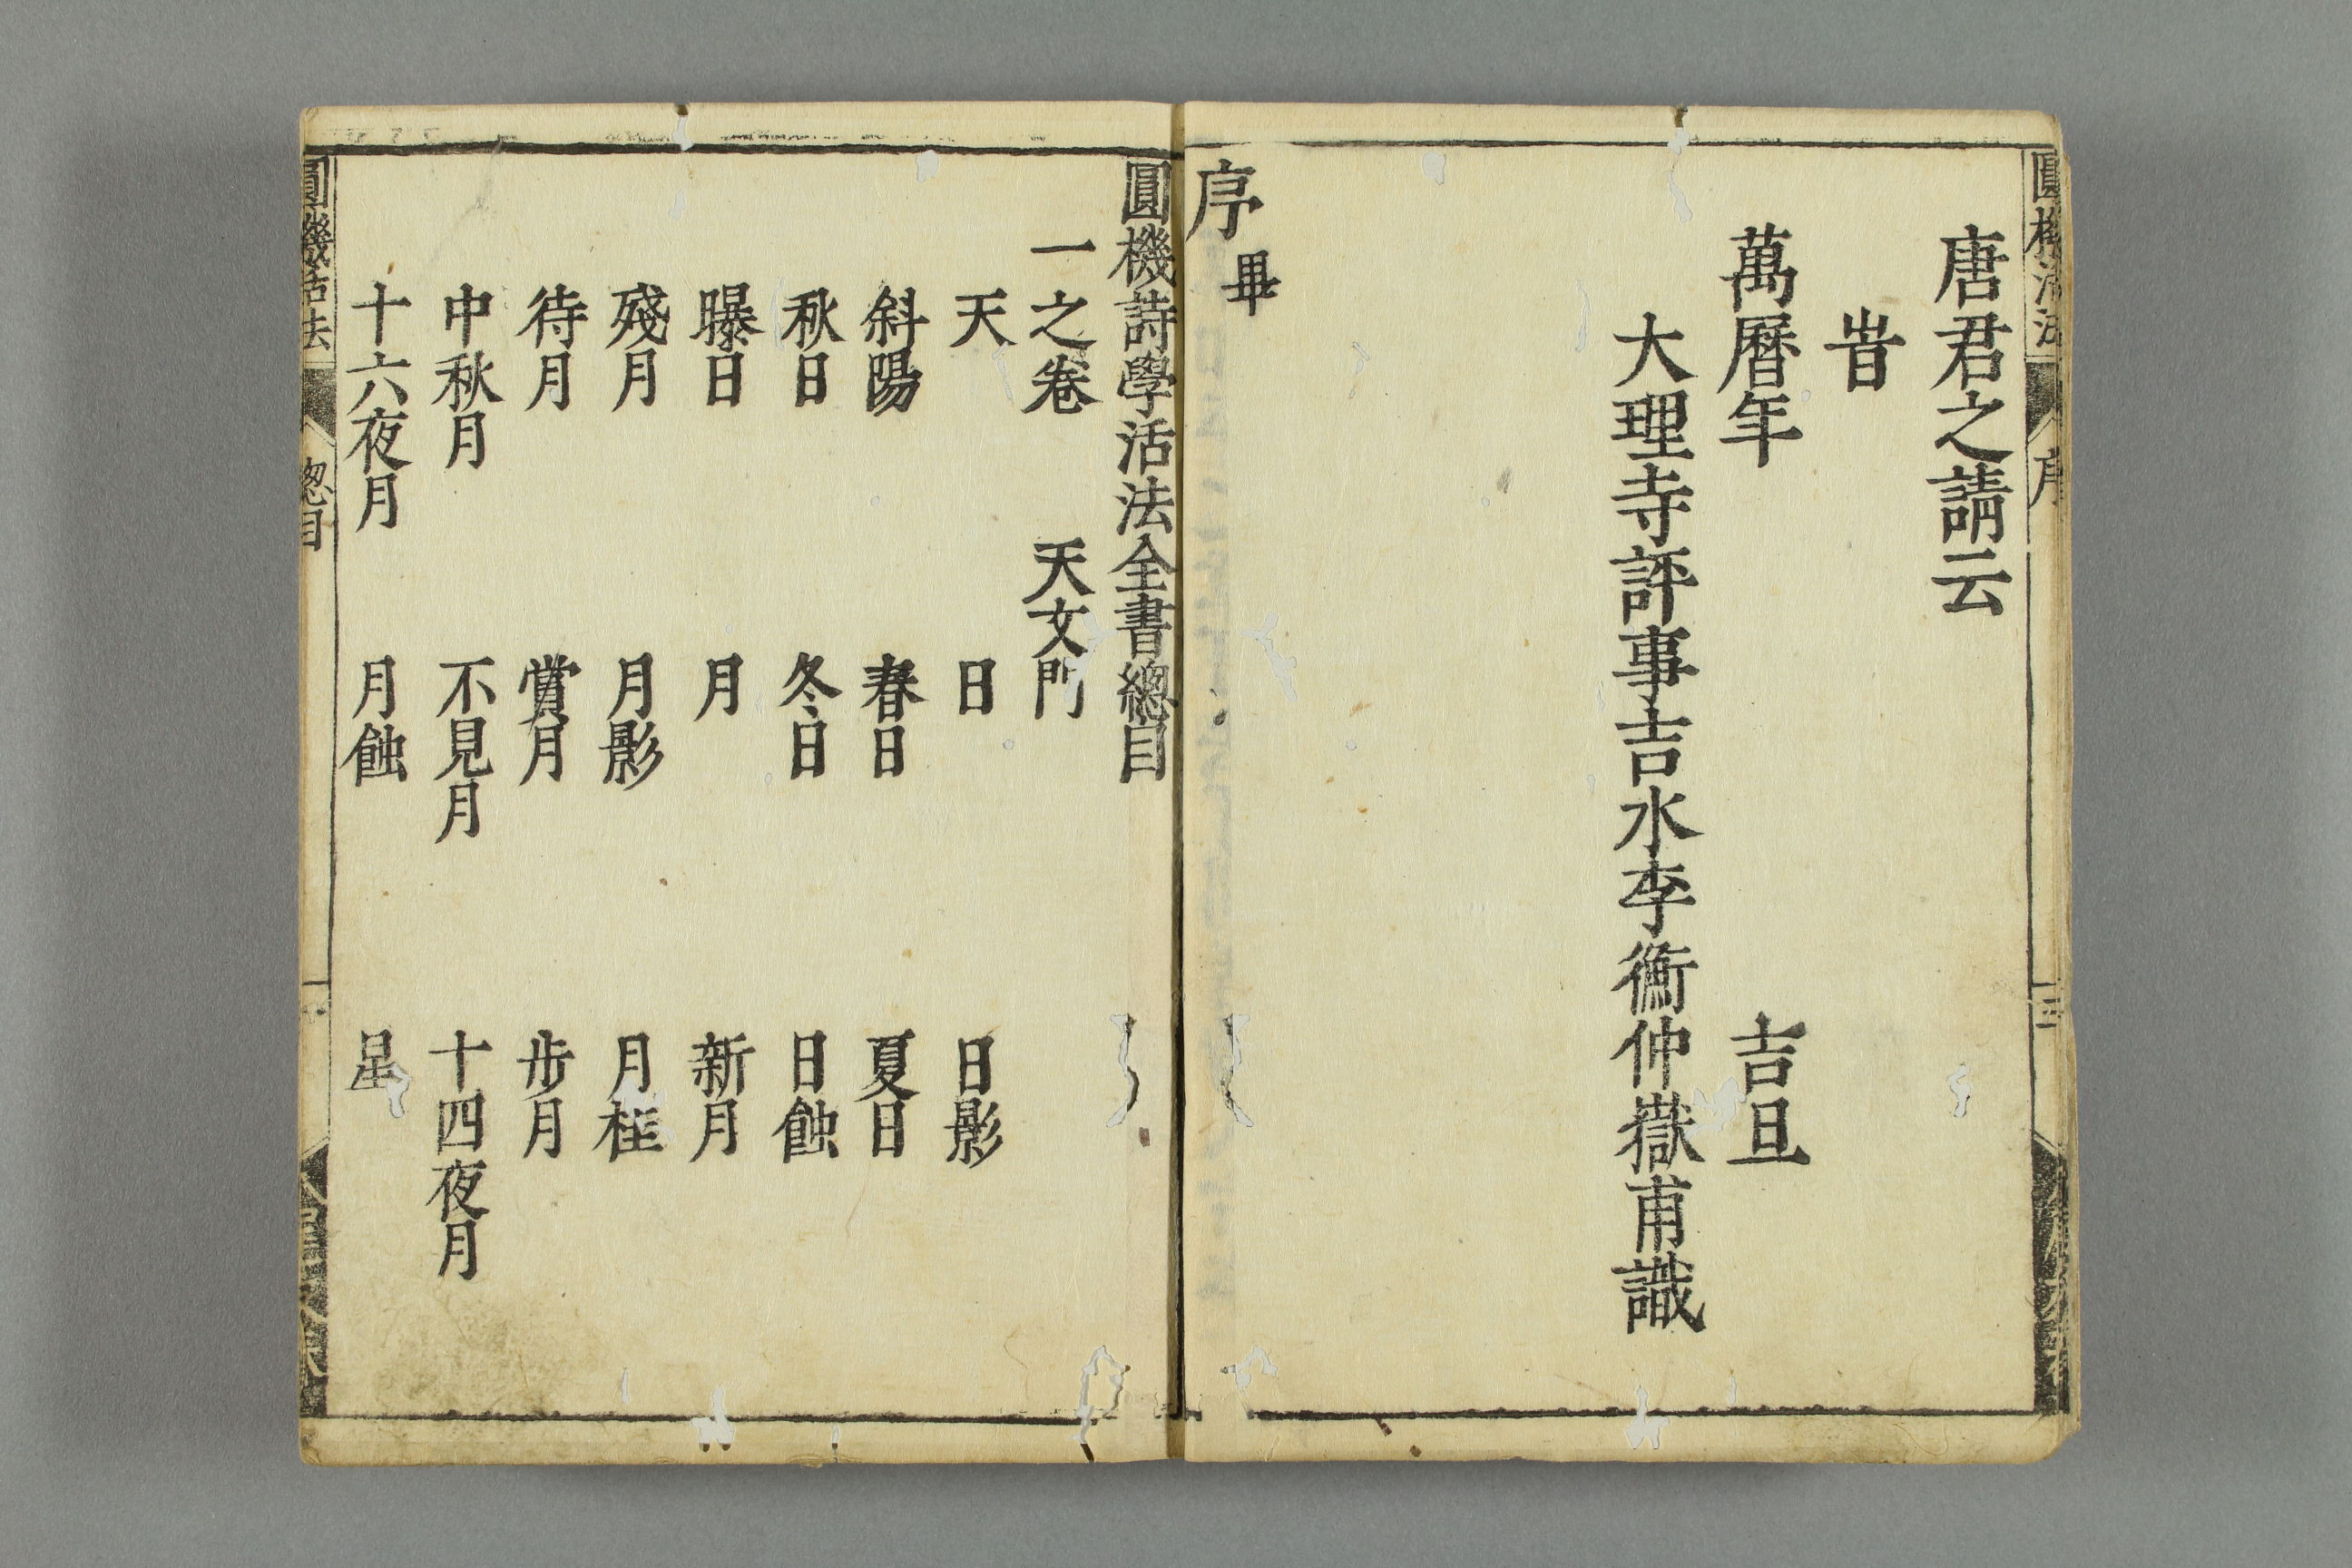 唐君之請云
旹
萬曆年 吉旦
大理寺評事吉水李衡仲嶽甫識
序畢
圓機詩學活法全書總目
一之卷 天文門
天 日 日影
斜陽 春日 夏日
秋日 冬日 日蝕
曝日 月 新月
殘月 月影 月桂
待月 賞月 步月
中秋月 不見月 十四夜月
十六夜月 月蝕 星
圓機活法 序 三
圓機活法 總目 一